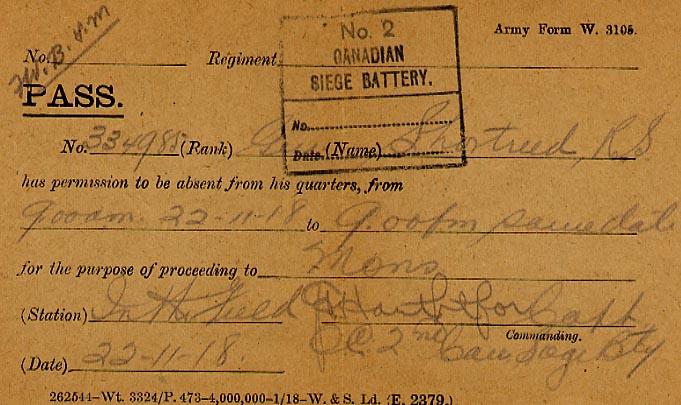 No. Regiment Army Form W. 3105.
No. 2
CANADIAN
SIEGE BATTERY.
No.
Date.
PASS.
No. 334985 (Rank) Gnr (Name) Shortreed, R.S
has permission to be absent from his quarters, from
9.00am. 22-11-18 to 9.00pm same date
for the purpose of proceeding to Mons
(Station) In the Field for Capt
Commanding.
(Date) 22-11-18 O.C. 2nd Can Siege Bty
262544-Wt. 3324/P. 473-4,000,000-1/18-W. & S. Ld. (E. 2379.)